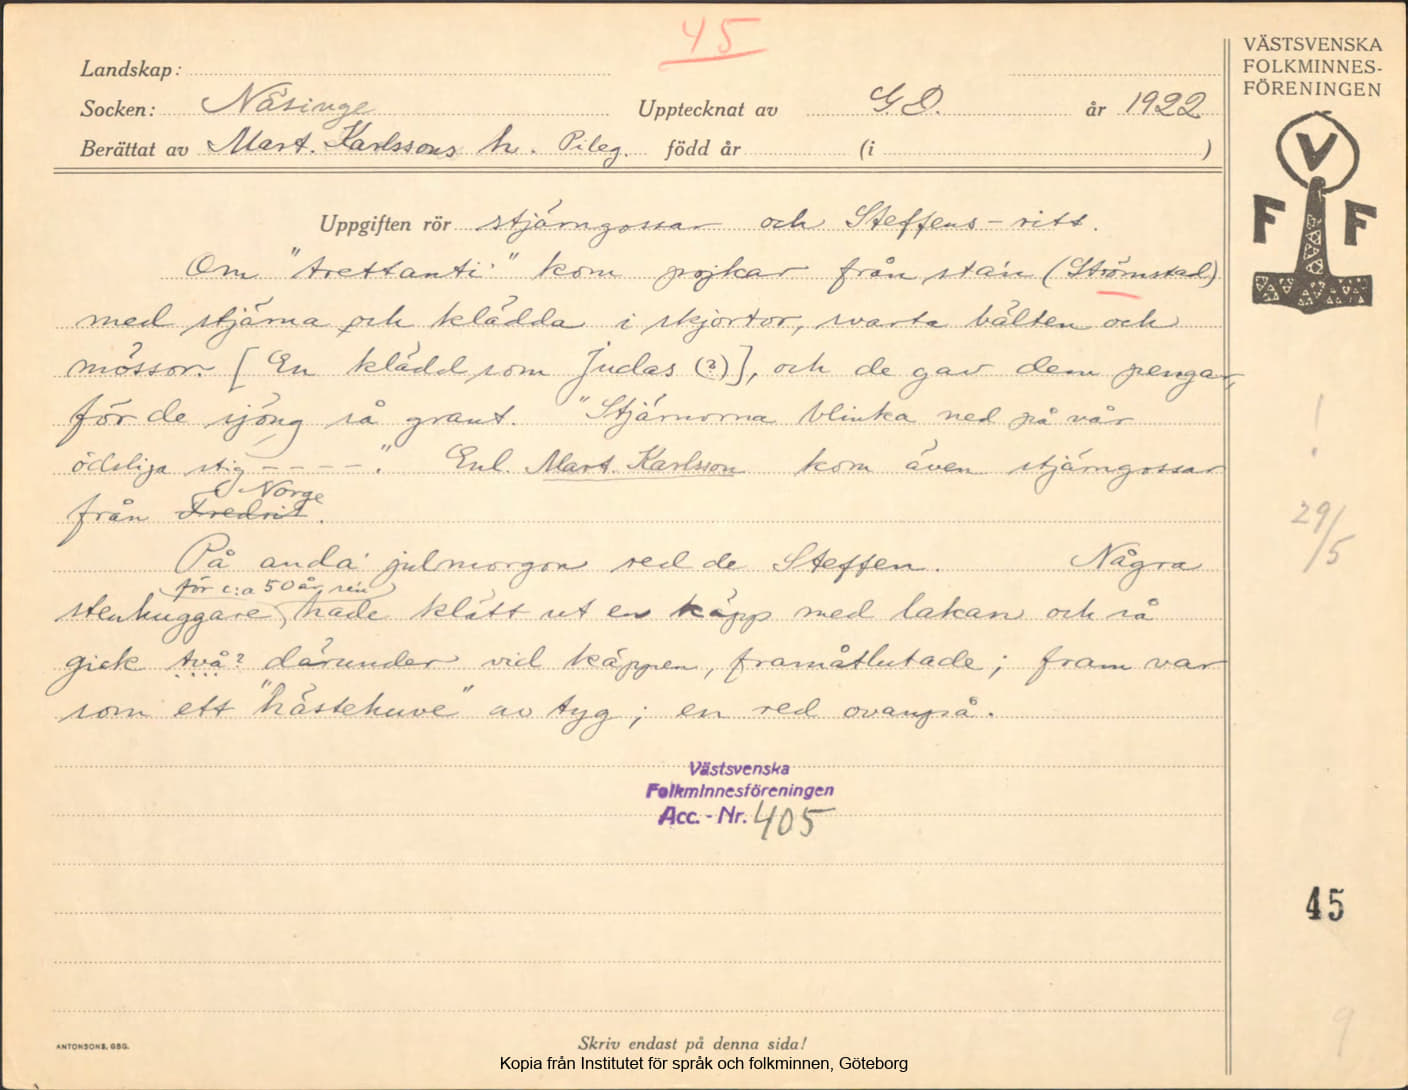 45
VÄSTSVENSKA
FOLKMINNES-
FÖRENINGEN
Landskap:
Socken: Näsinge Upptecknat av G. D. år 1922
Berättat av Mart. Karlssons h. Pileg. född år (i )
V
F F
Uppgiften rör stjärngossar och Steffens-ritt.
Om "trettanti'" kom pojkar från sta'n (Strömstad)
med stjärna och klädda i skjortor, svarta bälten och
mössor. [En klädd som Judas (?)], och de gav dem pengar,
för de sjöng så grant. "Stjärnorna blinka ned på vår
ödsliga stig - - - -". Enl. Mart. Karlsson kom även stjärngossar
från Fredrit Norge.
På anda' julmorgon red de Steffen. Några
stenhuggare för c:a 50 år sen hade klätt ut en käpp med lakan och så
gick två? därunder vid käppen, framåtlutade; fram var
som ett "hästehuve" av tyg; en red ovanpå.
!
29/5
Västsvenska
Folkminnesföreningen
Acc. - Nr. 405
45
9
ANTONSONS, GBG.
Skriv endast på denna sida!
Kopia från Institutet för språk och folkminnen, Göteborg